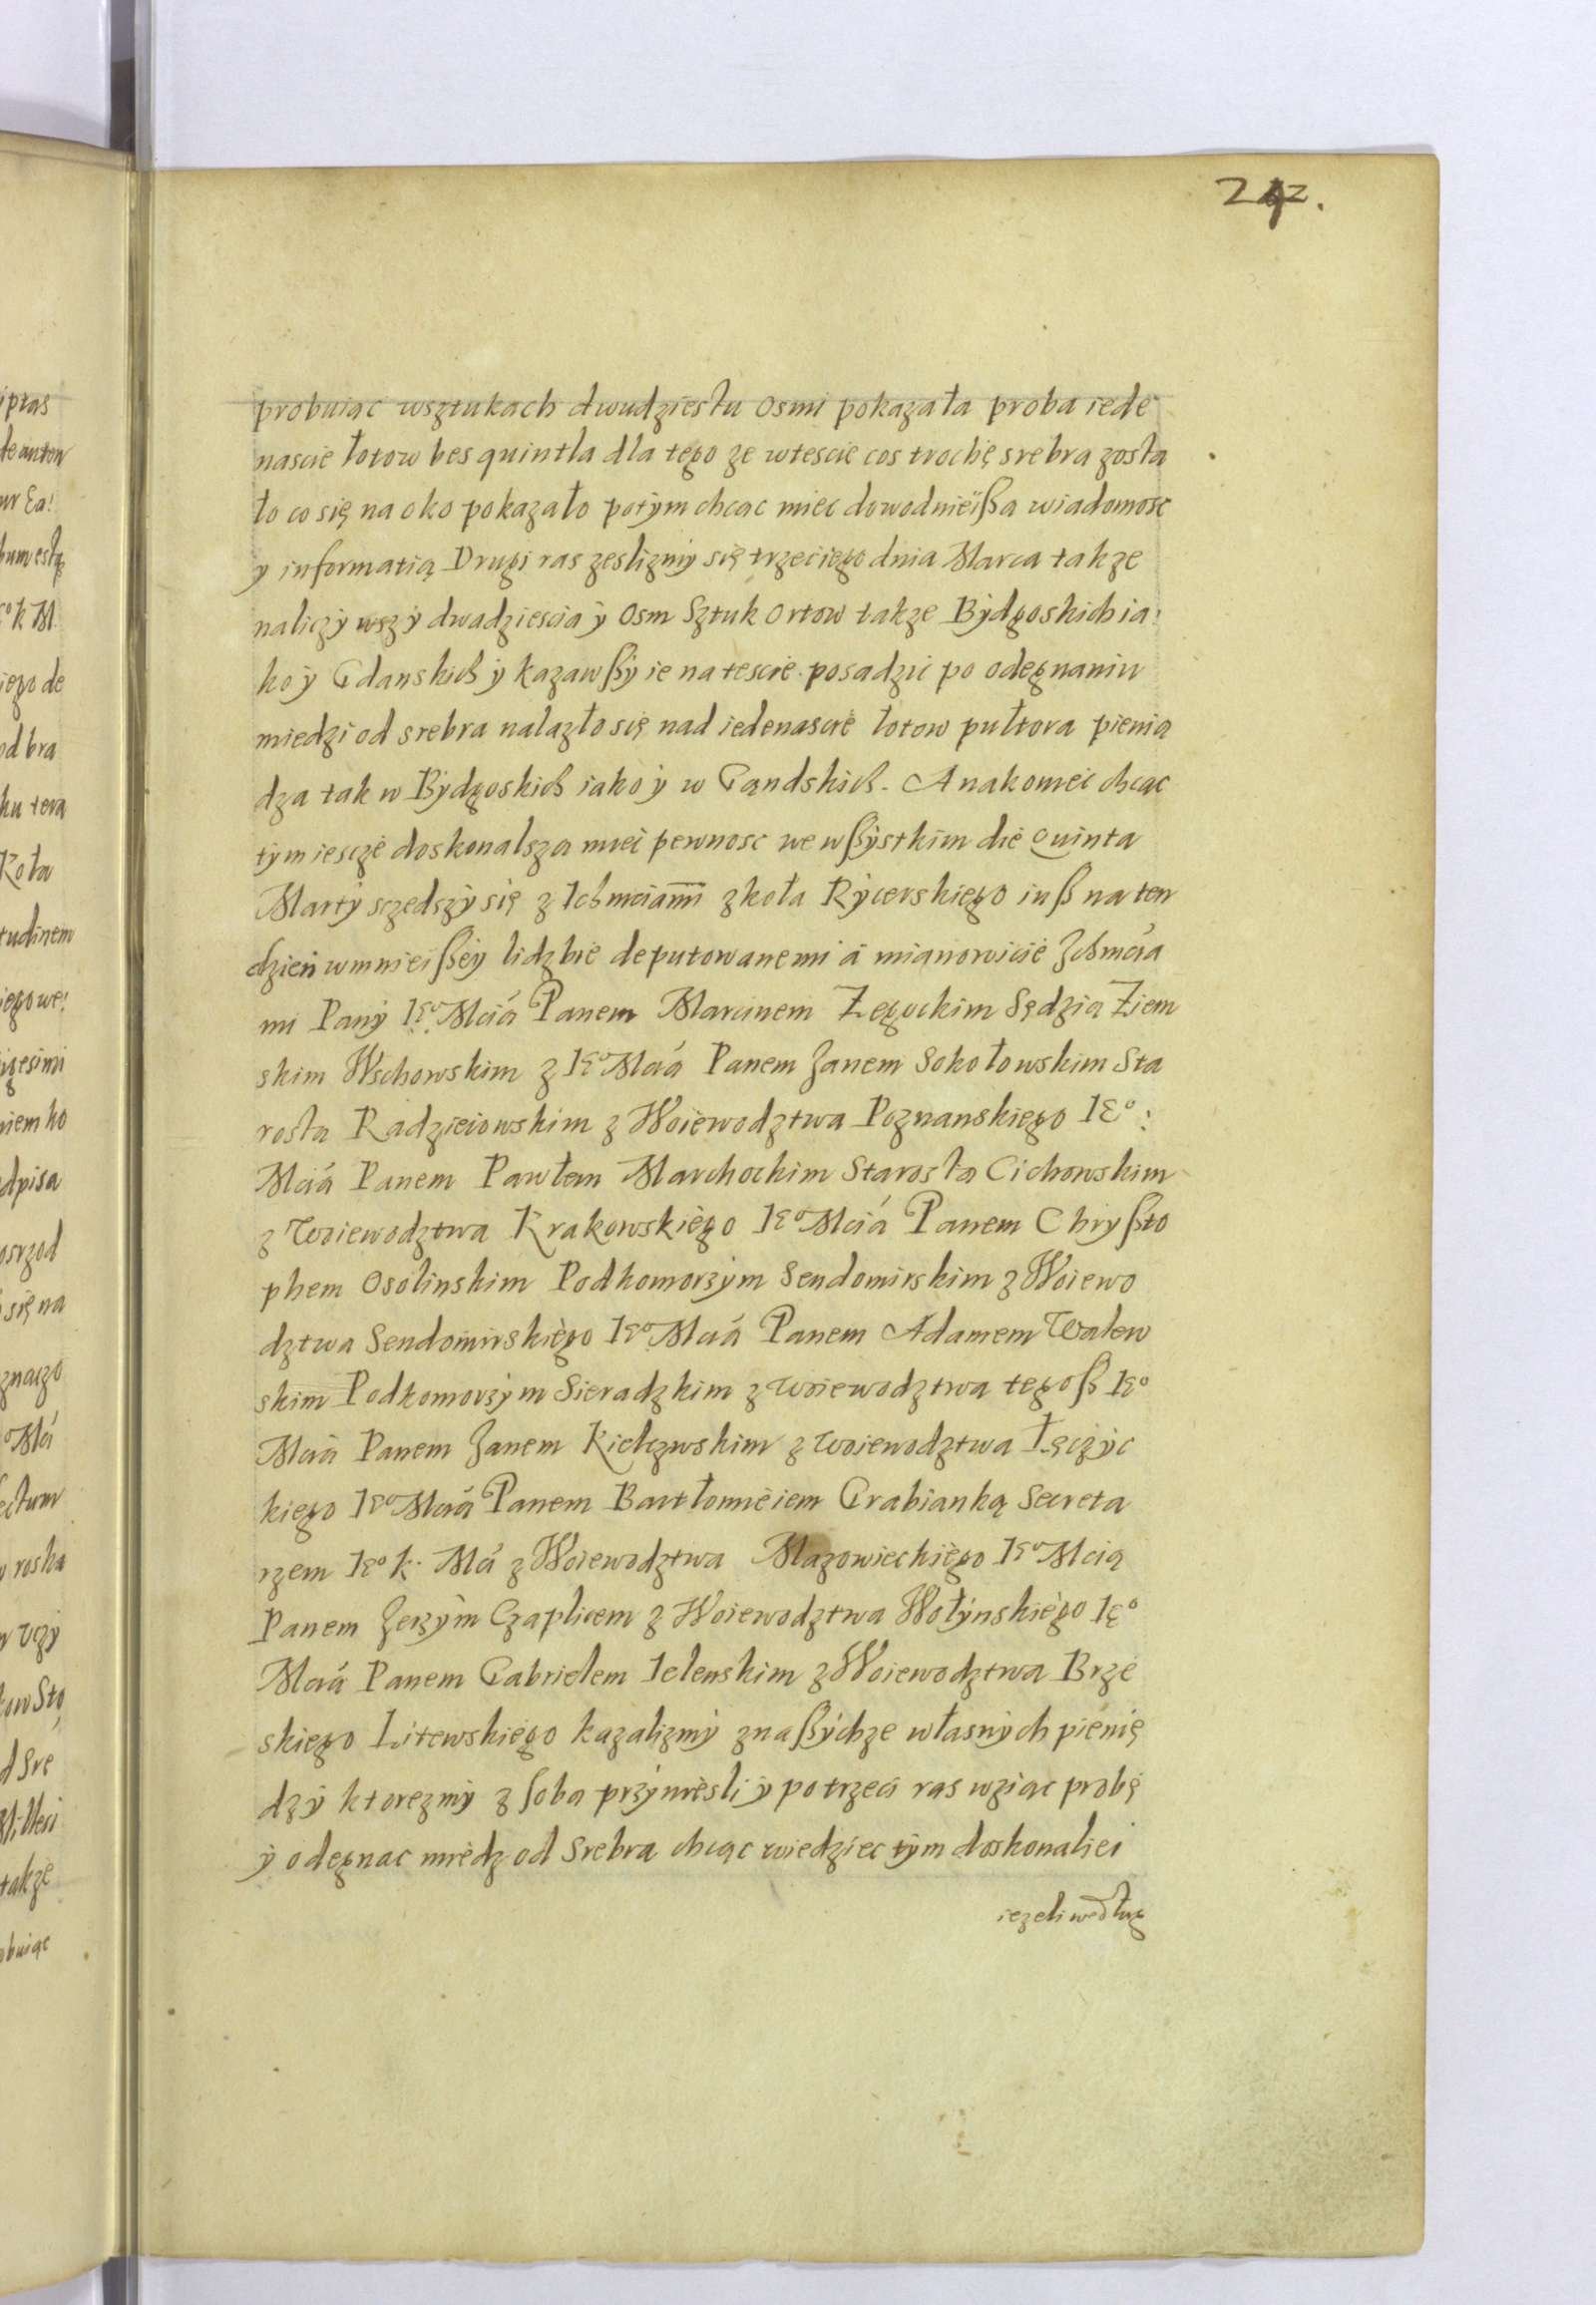 242.
probuiąc wsztukach dwudziestu osmi pokazała proba iede
nascie łotow bes quintla dla tego ze wtescie cos trochę srebra zosta
ło co się na oko pokazało potym chcąc miec dowodnieißa wiadomosc
y informatią Drugi ras zeslizmy się trzeciego dnia Marca takze
naliczywszy dwadziescia y osm Sztuk ortow takze Bydgoskich ia:
ko y Gdanskich y kazawßy ie na tescie posadzic po odegnaniu
miedzi od srebra nalazło się nad iedenascie łotow pułtora pienią
dza tak w Bydgoskich iako y w Gandskich. A nakoniec chcąc
tym iescze doskonalsza miec pewnosc we wßystkim die Quinta
Marty sczedszy się z Ichmciami z koła Rycerskiego iuß na ten
dzien wmnieißey lidzbie deputowanemi á mianowicie Ichmcia
mi Pany Ie͞o Mciá Panem Marcinem Zegockim Sędzią Ziem
skim Wschowskim z Ieo Mciá Panem Janem Sokołowskim Sta
rosta Radzieiowskim z Woiewodztwa Poznanskiego Ieo:
Mciá Panem Pawłem Marchockim Starosta Cichowskim
z Woiewodztwa Krakowskiego Ieo Mciá Panem Chryßto
phem Osolinskim Podkomorzym Sendomirskim z Woiewo
dztwa Sendomirskiego Ieo Mciá Panem Adamem Walew
skim Podkomorzym Sieradzkim z Woiewodztwa tegoß Ieo
Mciá Panem Janem Kielczwskim z Woiewodztwa Łęczyc
kiego Ieo Mciá Panem Bartłomieiem Grabianką Secreta
rzem Ieo k. Má z Woiewodztwa Mazowieckiego Ieo Mcią
Panem Jerzym Czaplicem z Woiewodztwa Wołynskiego Ieo
Mciá Panem Gabrielem Ielenskim z Woiewodztwa Brze
skiego Litewskiego kazalizmy znaßychze własnych pienię
dzy ktorezmy z soba przyniesli y po trzeci ras wziąc probę
y odegnac miedz od Srebra chcąc wiedziec tym doskonaliei
iezeli według